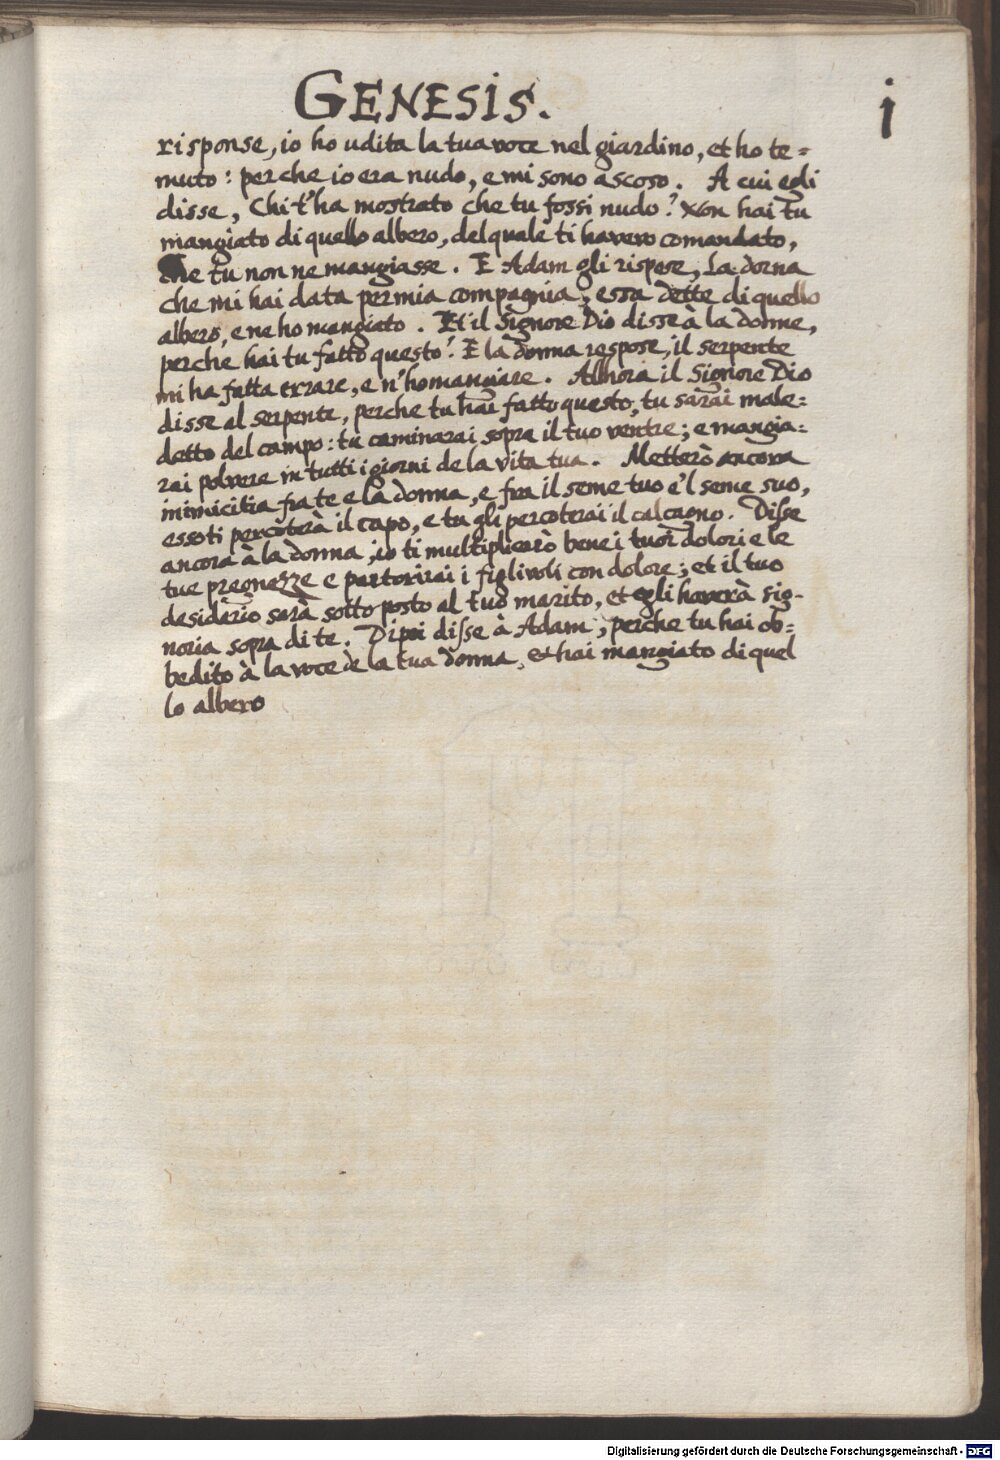 GENESIS.
i
risponse, io ho udita la tua voce nel giardino, et ho te=
muto: perche io era nudo, e mi sono ascoso. A cui egli
disse, Chi t'ha mostrato che tu fossi nudo? Non hai tu
mangiato di quello albero, del quale ti havero comandato,
che tu non ne mangiasse. E Adam gli rispose, La donna
che mi hai data per mia compagnia, essa dette di quello
albero, e ne ho mangiato. Et il Signore Dio disse à la donne,
perche hai tu fatto questo? E la donna respose, il serpente
mi ha fatta errare, e n'ho mangiare. Alhora il Signore Dio
disse al serpente, perche tu hai fatto questo, tu sarai male=
detto del campo: tu caminarai sopra il tuo ventre; e mangia=
rai polvere in tutti i giorni de la vita tua. Metterò ancora
inimicitia fra te e la donna, e fra il seme tuo e'l seme suo,
esso ti percoterà il capo, e tu gli percoterai il calcagno. Disse
ancora à la donna, io ti multiplicarò bene i tuoi dolori e le
tue pregnezze e partorirai i figlivoli con dolore; et il tuo
desidario sarà sotto posto al tuo marito, et egli haverà sig-
noria sopra di te. Di poi disse à Adam; perche tu hai ob=
bedito à la voce de la tua donna, et hai mangiato di quel
lo albero
Digitalisierung gefördert durch die Deutsche Forschungsgemeinschaft - DFG